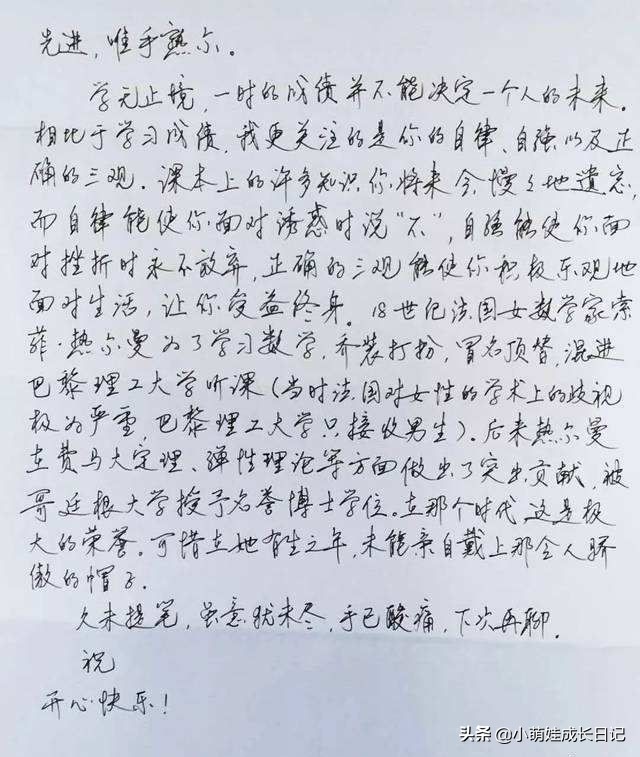 先进，唯手熟尔。
学无止境，一时的成绩并不能决定一个人的未来。
相比于学习成绩，我更关注的是你的自律、自强以及正
确的三观。课本上的许多知识你将来会慢々地遗忘，
而自律能使你面对诱惑时说“不”，自强能使你面
对挫折时永不放弃，正确的三观能使你积极乐观地
面对生活，让你受益终身。18世纪法国女数学家索
菲·热尔曼为了学习数学，乔装打扮，冒名顶替，混进
巴黎理工大学听课（当时法国对女性的学术上的歧视
极为严重，巴黎理工大学只接收男生）。后来热尔曼
在费马大定理、弹性理论等方面做出了突出贡献，被
哥廷根大学授予名誉博士学位。在那个时代，这是极
大的荣誉。可惜在她有生之年，未能亲自戴上那令人骄
傲的帽子。
久未提笔，虽意犹未尽，手已酸痛，下次再聊。
祝
开心快乐！
头条 @小萌娃成长日记